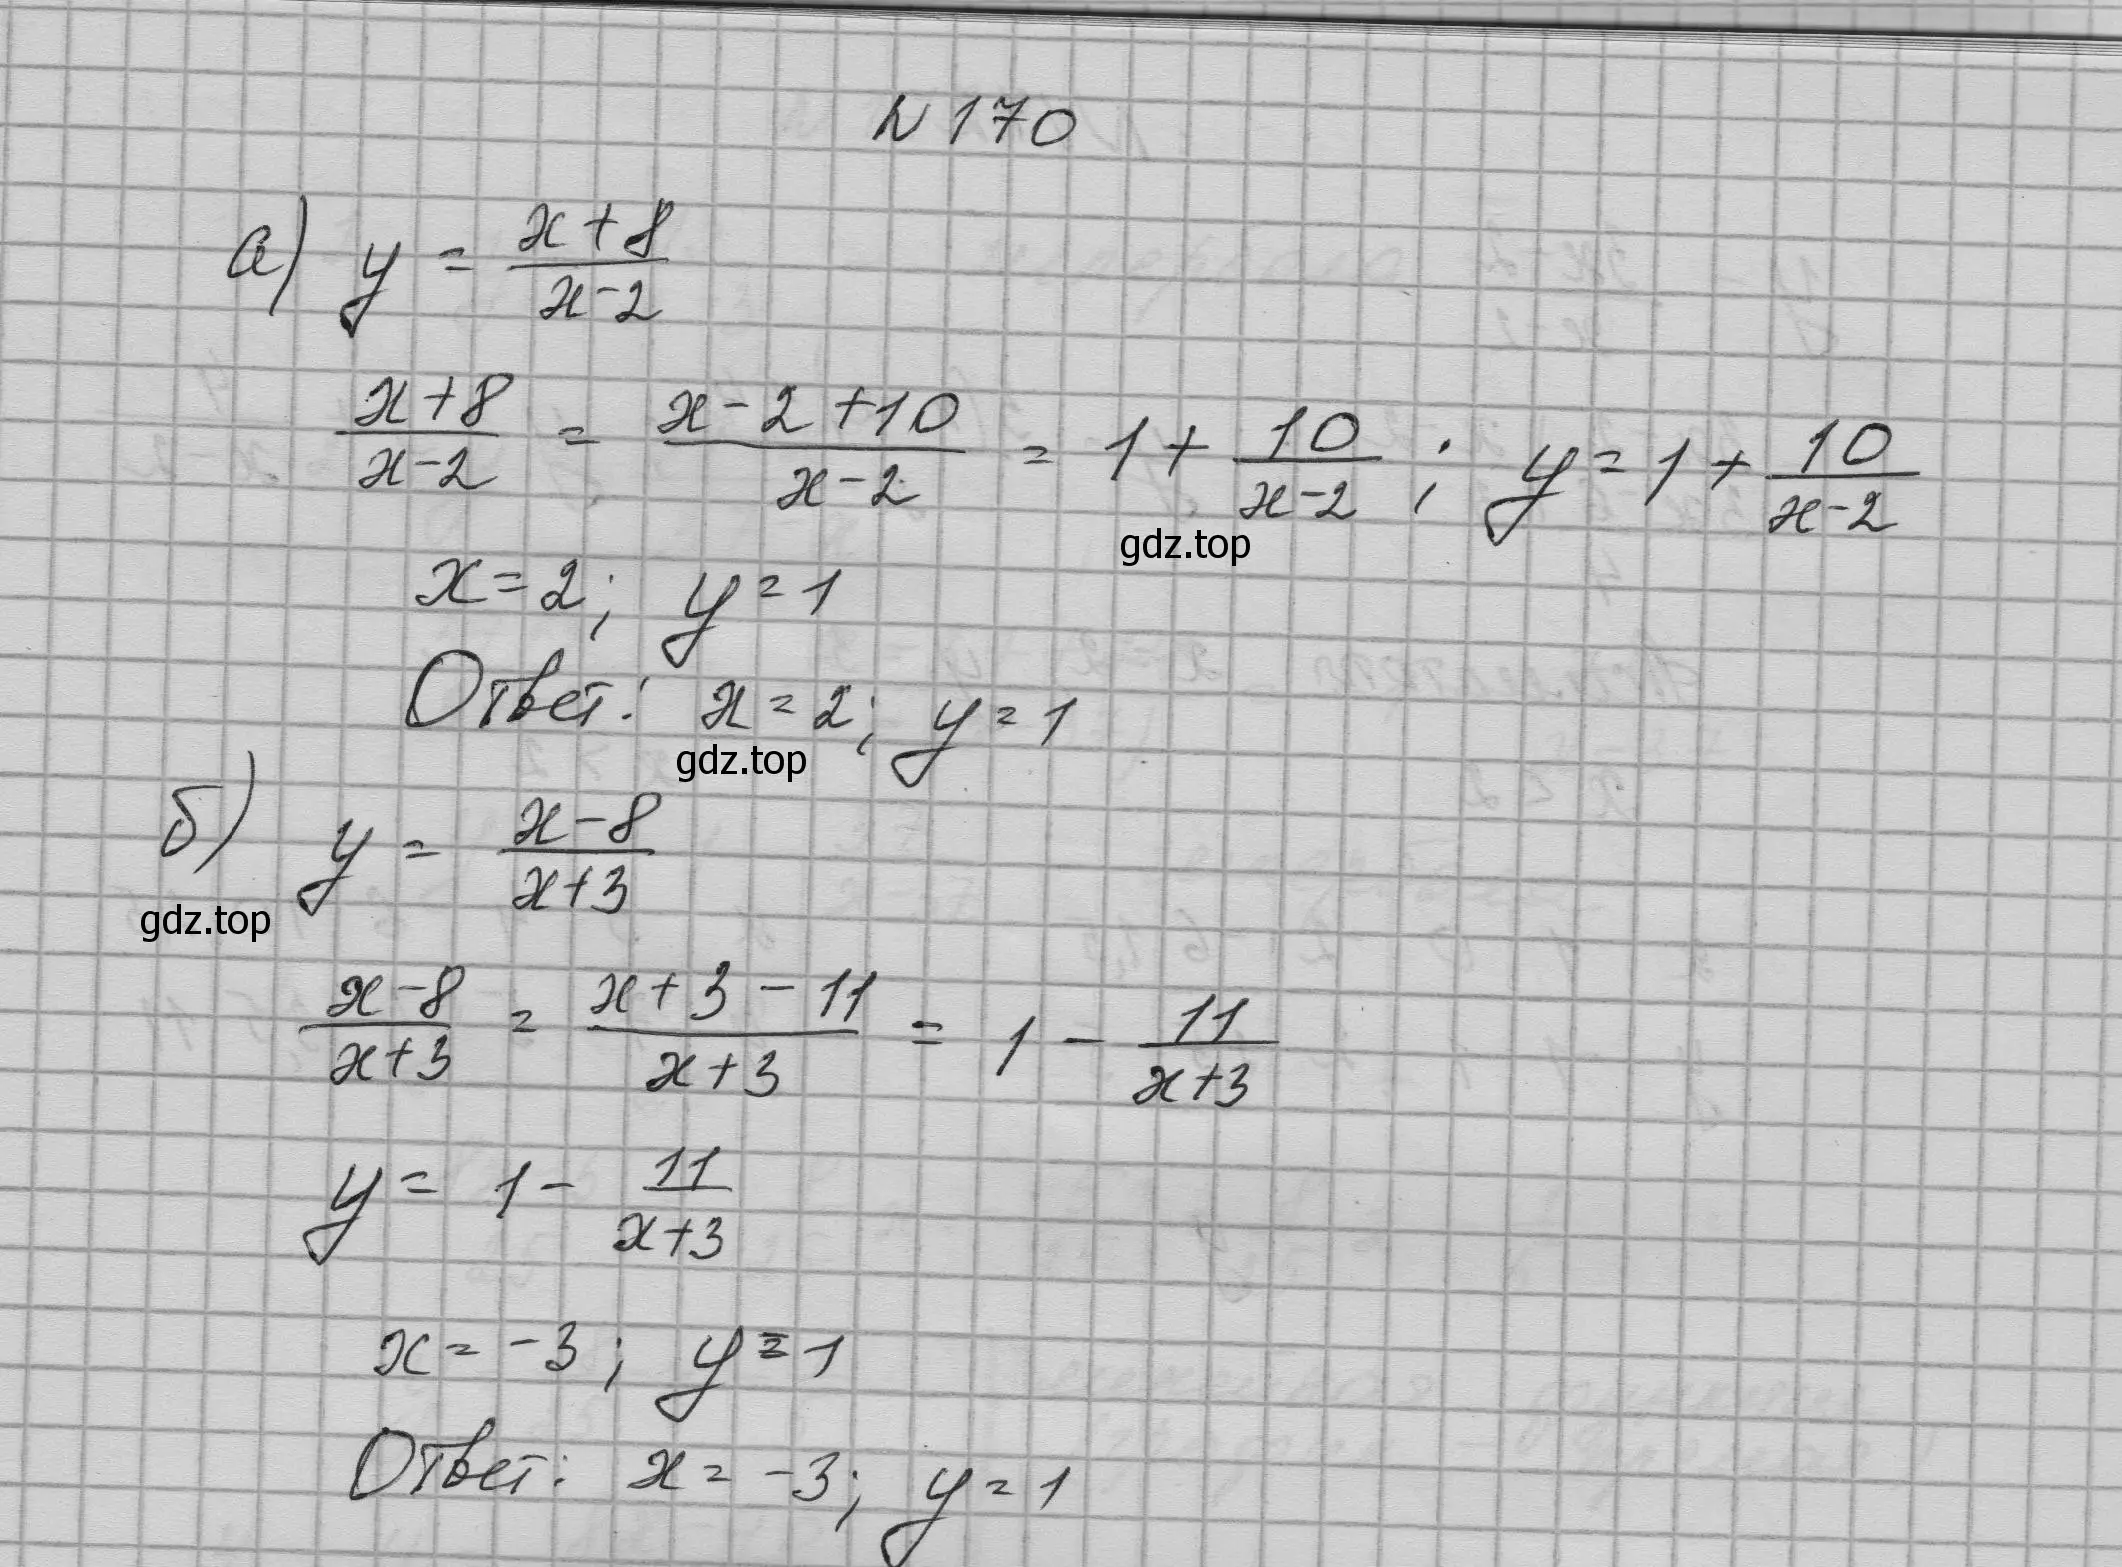 N 170
а) y = \frac{x+8}{x-2}
\frac{x+8}{x-2} = \frac{x-2+10}{x-2} = 1 + \frac{10}{x-2} ; y = 1 + \frac{10}{x-2}
gdz.top
x = 2 ; y = 1
Ответ: x = 2; y = 1
gdz.top
б) y = \frac{x-8}{x+3}
gdz.top
\frac{x-8}{x+3} = \frac{x+3-11}{x+3} = 1 - \frac{11}{x+3}
y = 1 - \frac{11}{x+3}
x = -3 ; y = 1
Ответ: x = -3; y = 1